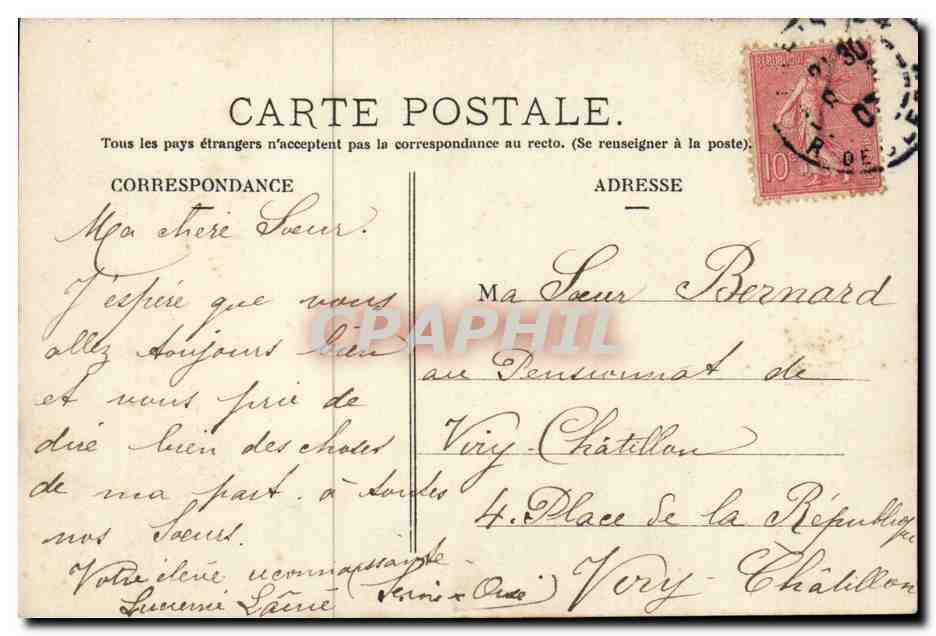 CARTE POSTALE.
Tous les pays étrangers n'acceptent pas la correspondance au recto. (Se renseigner à la poste).
CORRESPONDANCE
Ma chère Soeur.
J'espère que vous
allez toujours bien
et vous prie de
dire bien des choses
de ma part à toutes
nos Soeurs.
Votre élève reconnaissante
Lucienne
ADRESSE
Ma Soeur Bernard
au Pensionnat de
Viry-Châtillon
4. Place de la République
Viry-Châtillon
(Seine & Oise)
REPUBLIQUE
10
CPAPHIL